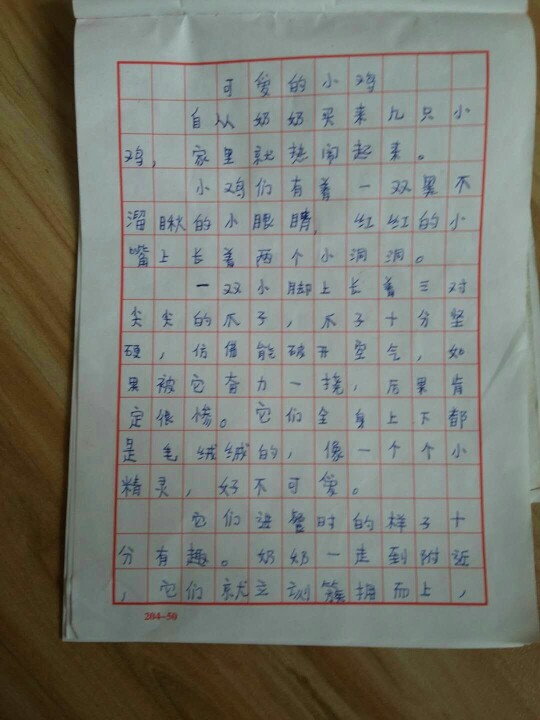 可爱的小鸡
自从奶奶买来几只小
鸡，家里就热闹起来。
小鸡们有着一双黑不
溜瞅的小眼睛，红红的小
嘴上长着两个小洞洞。
一双小脚上长着三对
尖尖的爪子，爪子十分坚
硬，仿佛能破开空气，如
果被它奋力一挠，后果肯
定很惨。它们全身上下都
是毛绒绒的，像一个个小
精灵，好不可爱。
它们进餐时的样子十
分有趣。奶奶一走到附近
，它们就立刻簇拥而上，
204-50